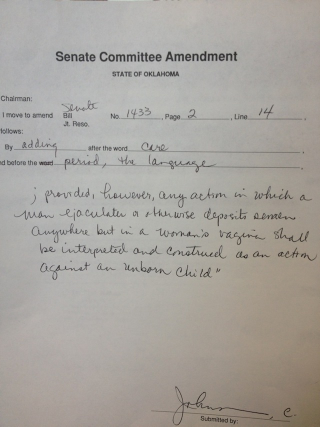 Senate Committee Amendment
STATE OF OKLAHOMA
Chairman:
Senate
I move to amend Bill No. 1433, Page 2, Line 14,
Jt. Reso.
follows:
By adding after the word care
nd before the word period, the language
; provided, however, any action in which a
man ejaculates or otherwise deposits semen
anywhere but in a woman's vagina shall
be interpreted and construed as an action
against an unborn child"
Johnson, C.
Submitted by: